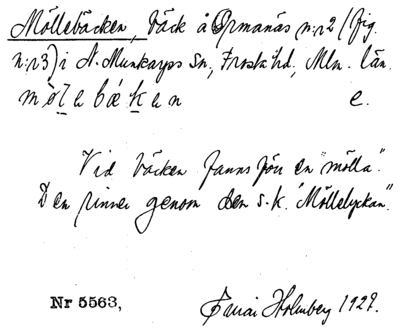 Möllebäcken, bäck å Ormanäs n:r2 (fig.
n:r3) i N. Munkarps sn, Frosta hd, Mlm. län.
mölebæken e.
Vid bäcken fanns förr en "mölla".
Den rinner genom den s.k. "Möllelyckan".
Nr 5563, Holmberg 1927.